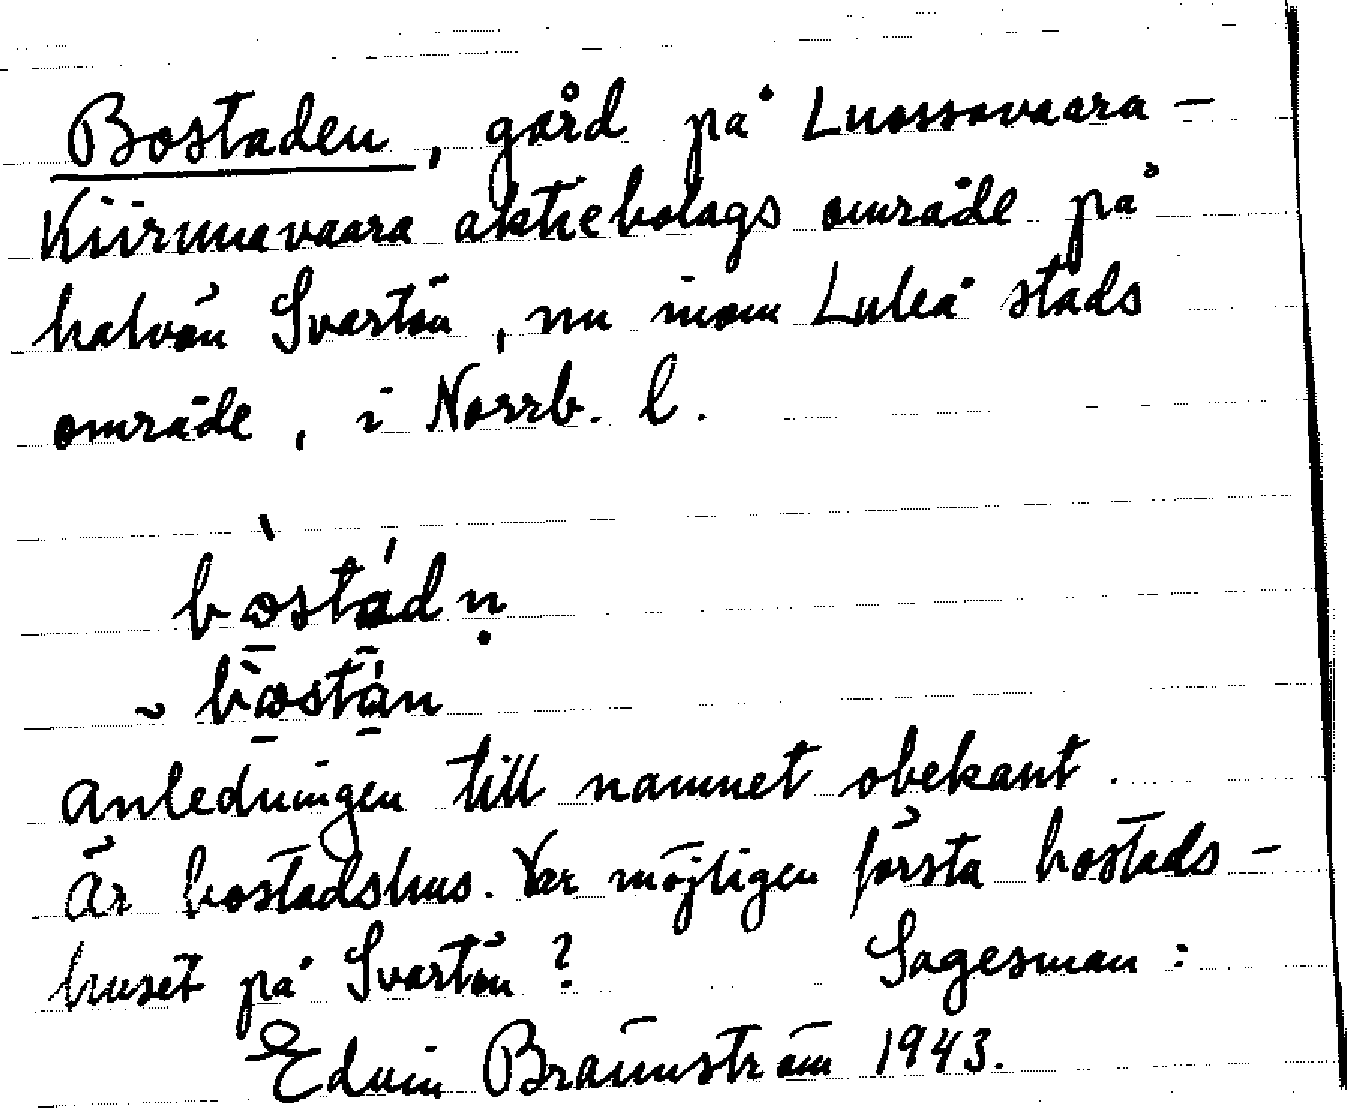 Bostaden, gård på Luossavaara-
Kiirunavaara aktiebolags område på
halvön Svartön, nu inom Luleå stads
område, i Norrb. l.
bòstádṇ
~ bòstán
Anledningen till namnet obekant.
Är bostadshus. Var möjligen första bostads-
huset på Svartön? Sagesman:
Edvin Brännström 1943.